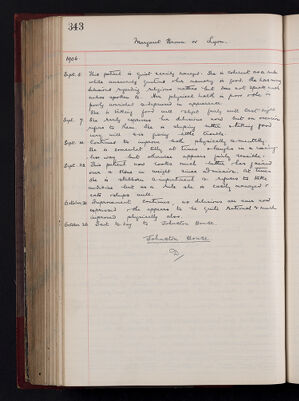 343
Margaret Brown or Lyon.
1906
Sept. 6 This patient is quiet easily managed. She is coherent as a rule
while answering questions & her memory is good. She has many
delusions regarding religious matters but does not speak much
unless spoken to. Her physical health is poor & she is
poorly nourished & depressed in appearance.
She is taking food well & slept fairly well last night.
Sept. 9 She rarely expresses her delusions now but on occasion
refers to them. She is sleeping better & taking food
very well & is giving little trouble.
Sept. Continues to improve both physically & mentally.
She is somewhat silly at times & laughs in a
way but otherwise appears fairly sensible.
Sept. This patient now looks much better & has gained
over a stone in weight since admission. At times
she is stubborn & impertinent & refuses to take
medicine but as a rule she is easily managed &
eats & sleeps well.
October Improvement continues, no delusions are ever now
expressed & she appears to be quite rational & much
improved physically also.
October 26 Sent to day to Johnston House.
Johnston House
D/